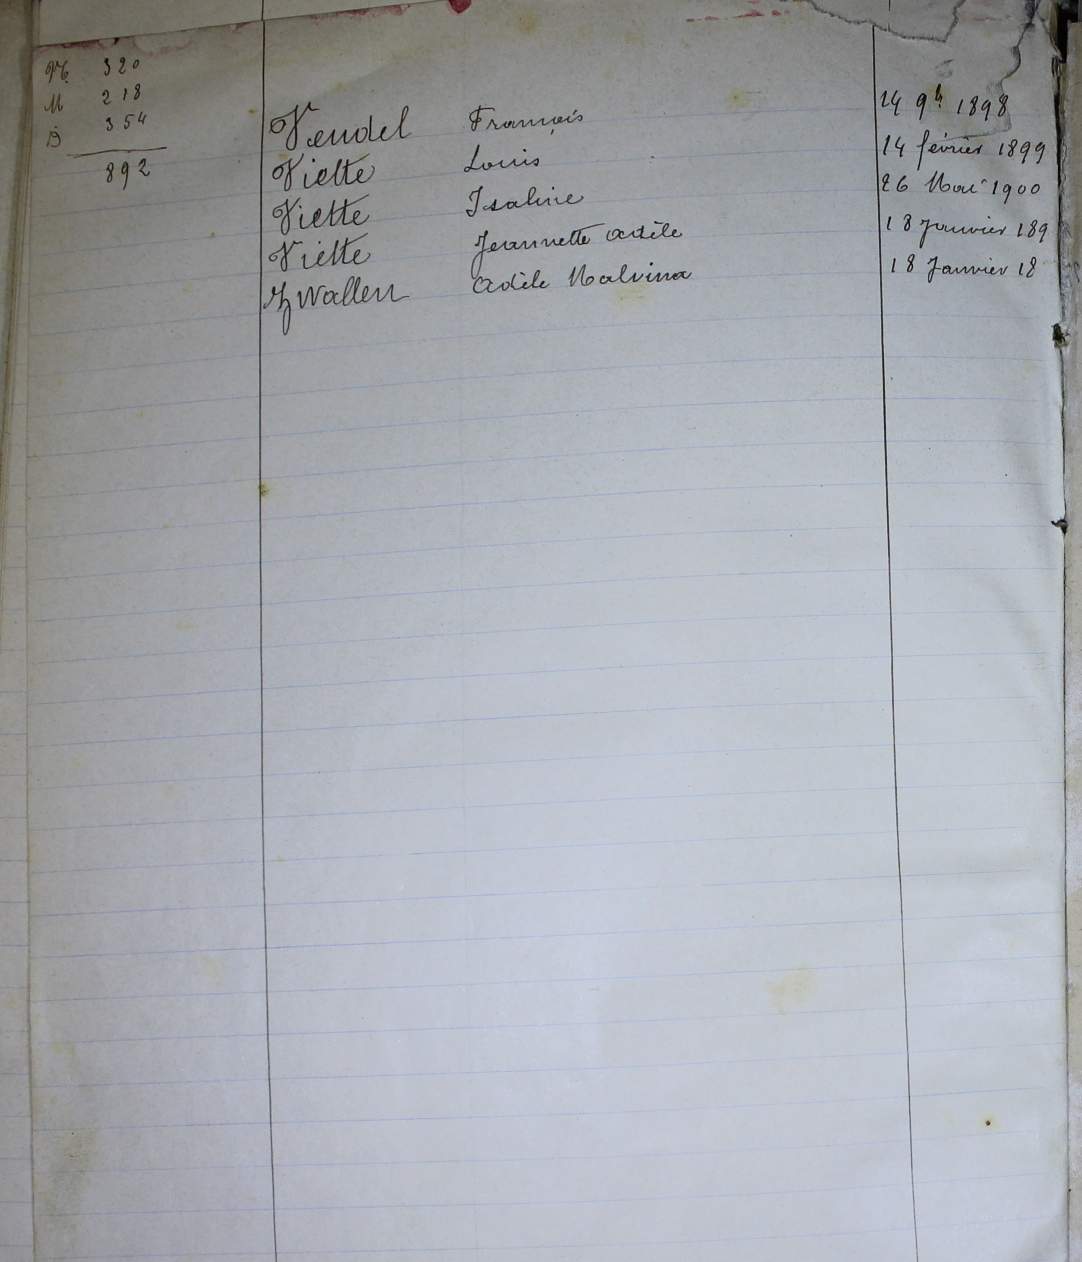 N. 320
M 218
D 354
892
Vendel François 14 9b 1898
Viette Louis 14 février 1899
Viette Isaline 26 Mai 1900
Viette Jeannette Adèle 18 Janvier 189
Zwallen Adèle Malvina 18 Janvier 18